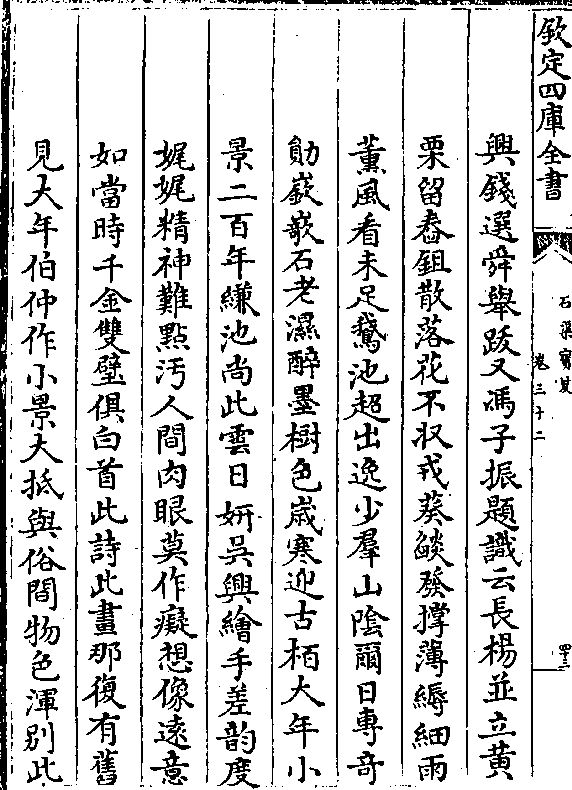 欽定四庫全書
石渠寶笈
卷三十二
四三
興錢選舜舉跋又馮子振題識云長楊並立黃
栗留舂鉏散落花不收戎葵燄發撐薄縟細雨
薰風看未足鵝池超出逸少羣山陰爾日專奇
勛嶔嵌石老濕醉墨樹色歲寒迎古栢大年小
景二百年縑池尚此雲日妍吳興繪手差韵度
娓娓精神難點汚人間肉眼莫作癡想像遠意
如當時千金雙璧俱白首此詩此畫那復有舊
見大年伯仲作小景大抵與俗間物色渾别此